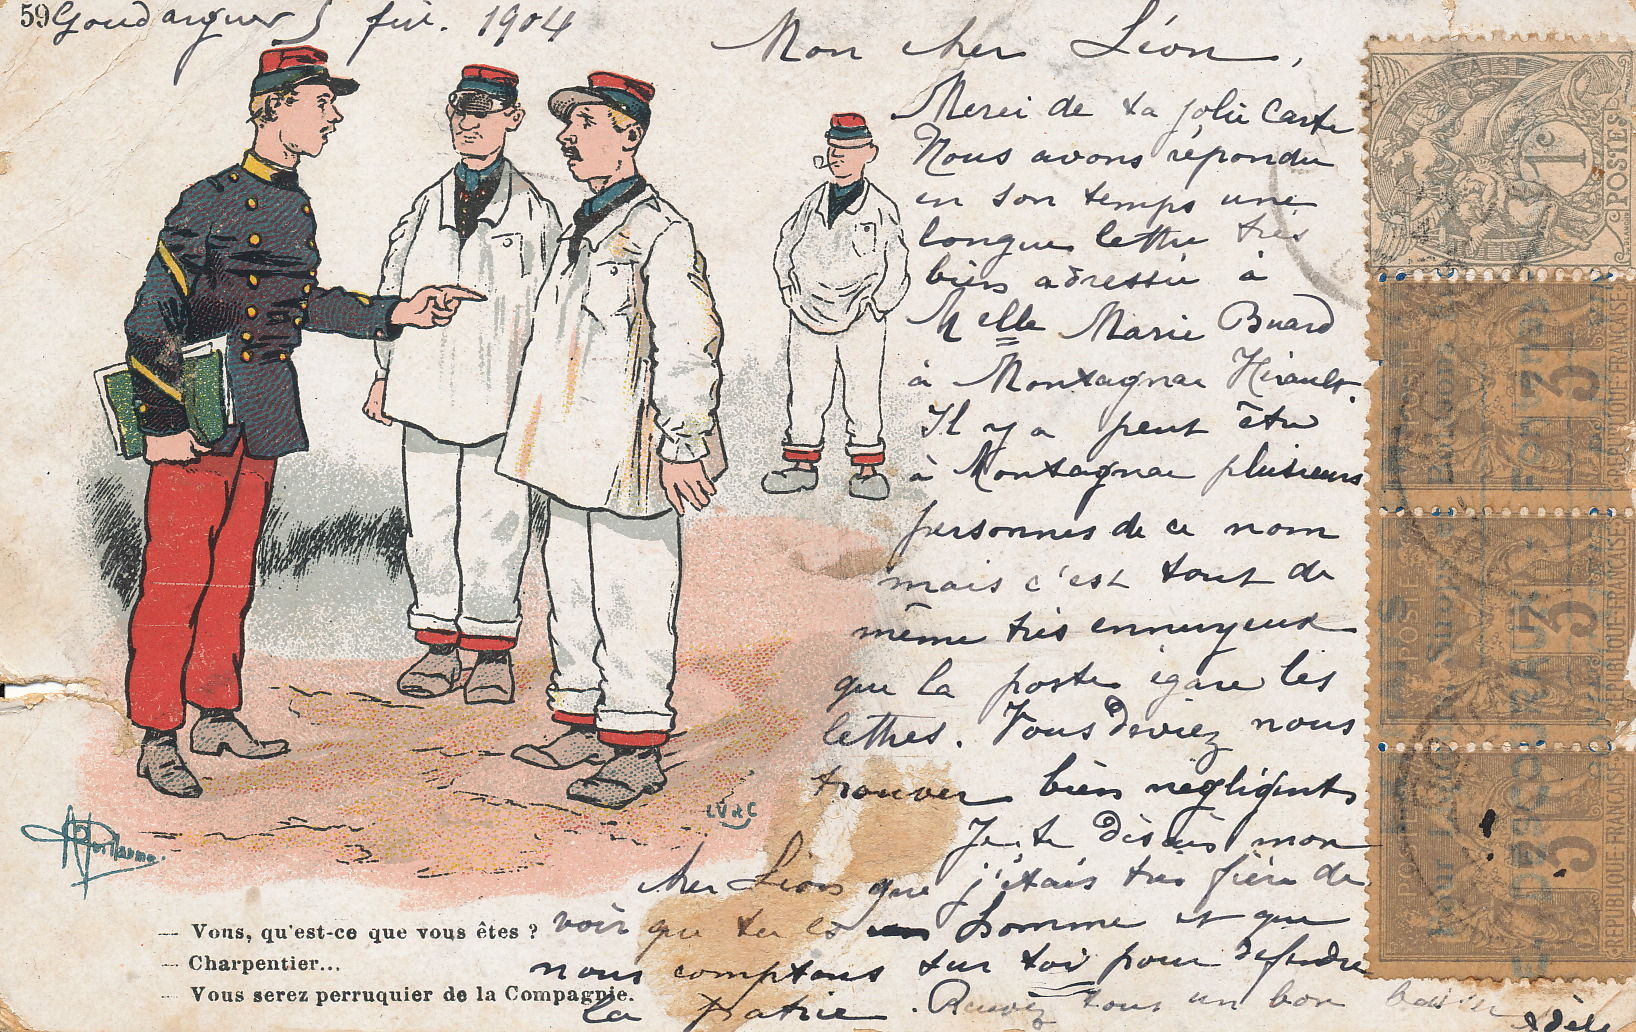 59 Goudargues 5 fév. 1904
Mon cher Léon,
Merci de ta jolie carte
Nous avons répondu
en son temps une
longue lettre très
bien adressée à
Melle Marie Buard
à Montagnac Hérault.
Il y a peut être
à Montagnac plusieurs
personnes de ce nom
mais c'est tout de
même très ennuyeux
que la poste égare les
lettres. Vous deviez nous
trouver bien négligents
Je te disais mon
cher Léon que j'étais très fière de
voir que tu es un homme et que
nous comptons sur toi pour défendre
la patrie. Recevez tous un bon baiser
Adèle
A Guillaume.
L V & C
— Vous, qu'est-ce que vous êtes ?
— Charpentier...
— Vous serez perruquier de la Compagnie.
1c
POSTES
REPUBLIQUE·FRANÇAISE
3
REPUBLIQUE·FRANÇAISE
3
REPUBLIQUE·FRANÇAISE
3